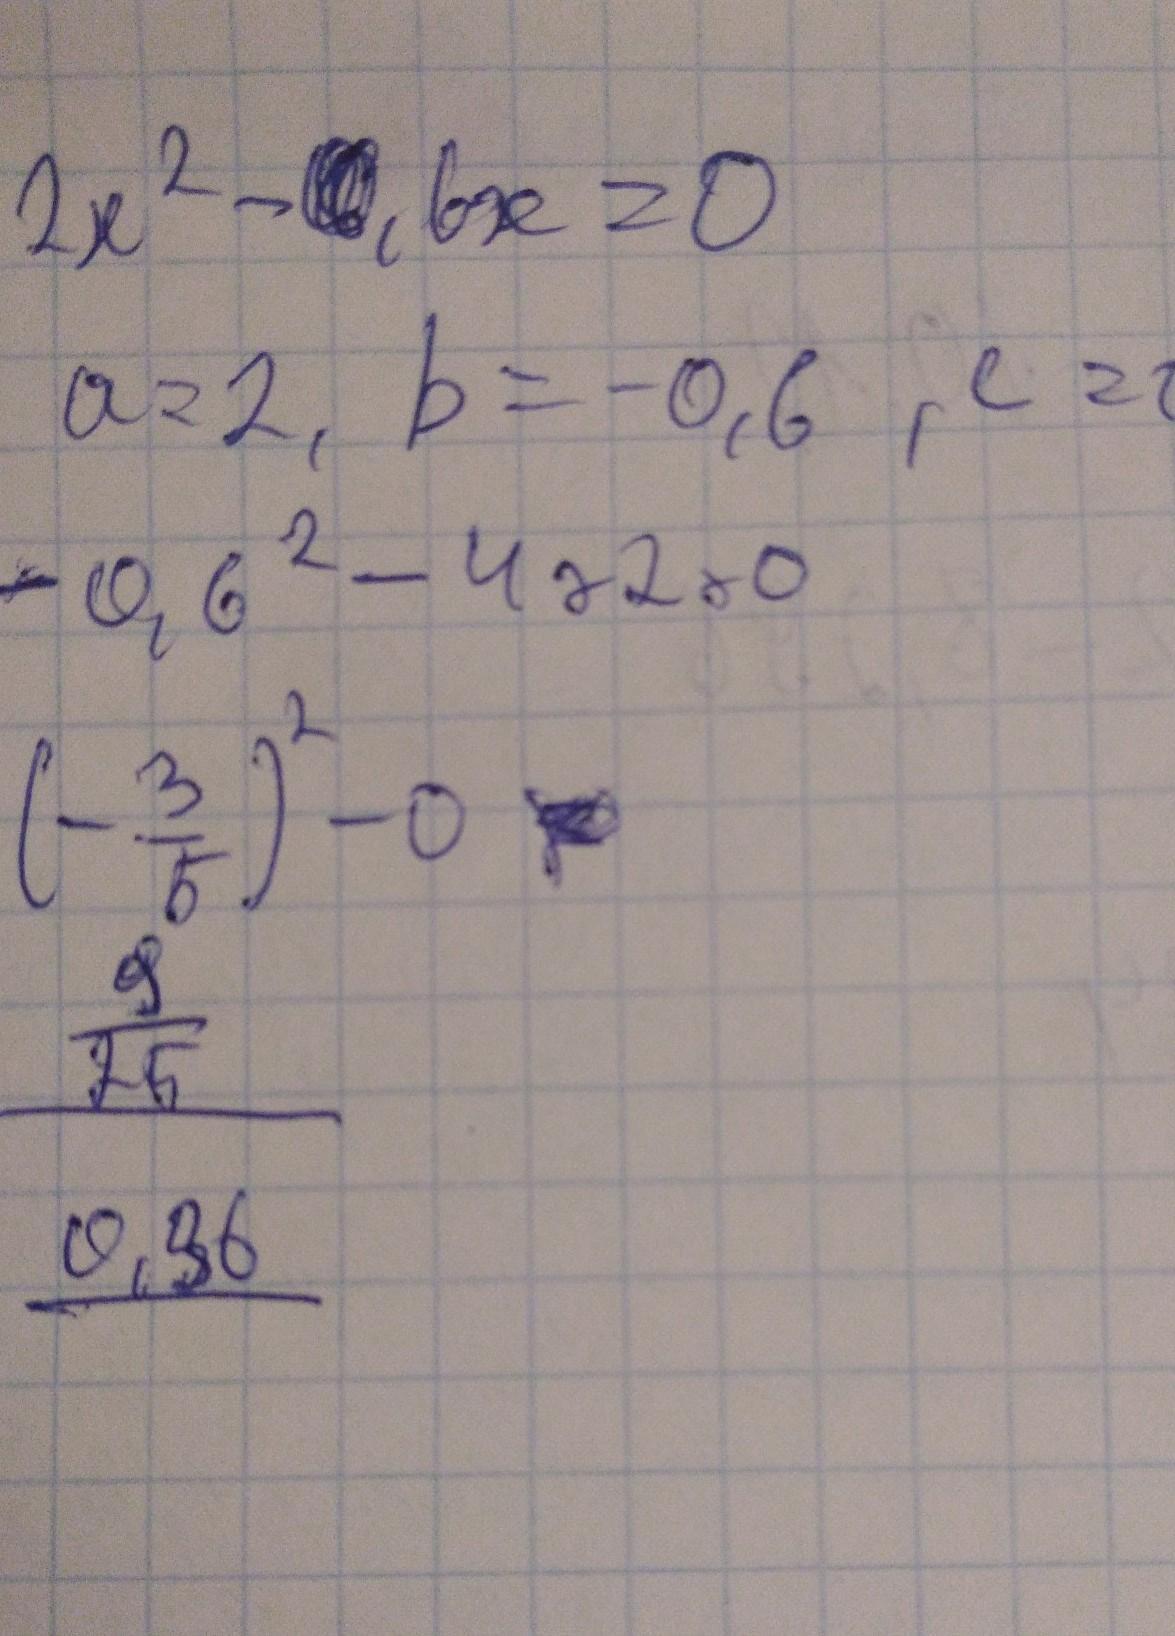 2x² - 0,6x = 0
a = 2, b = -0,6, c = 0
- 0,6² - 4 × 2 × 0
(- 3/5)² - 0
9/25
0,36